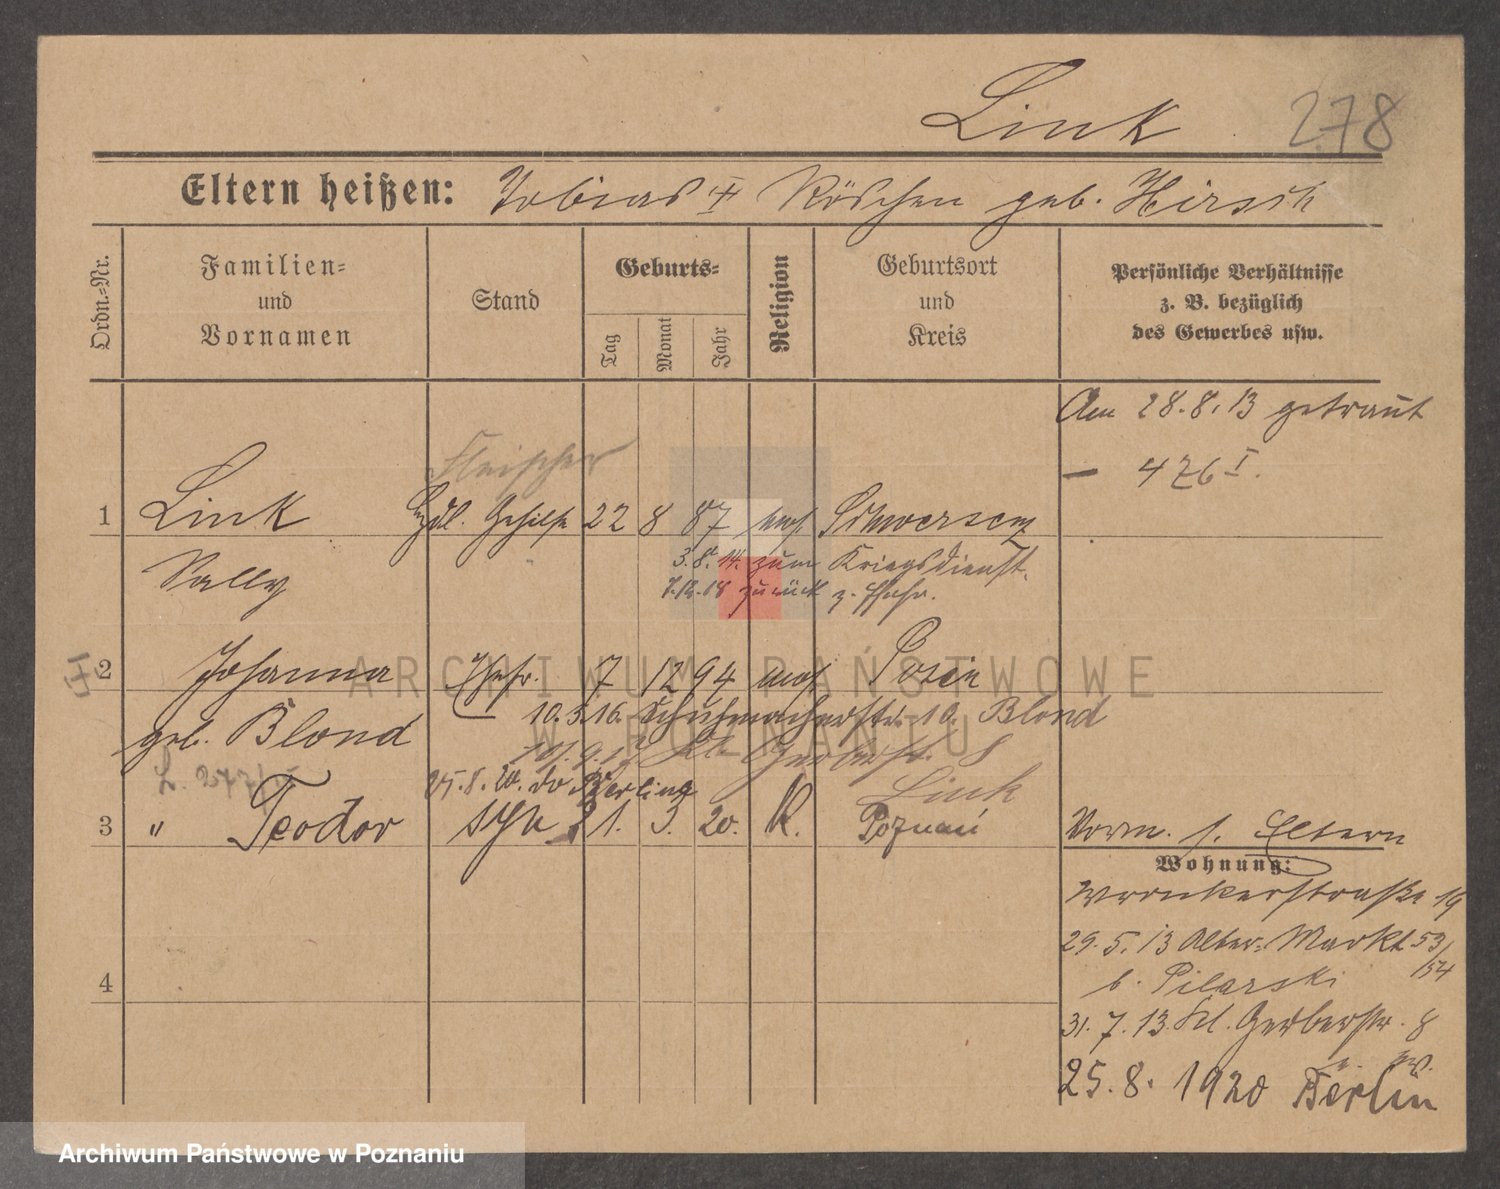 Link 278
Eltern heißen: Tobias u Röschen geb. Hirsch
Ordn.=Nr.
Familien= und Vornamen
Stand
Geburts=
Tag
Monat
Jahr
Religion
Geburtsort und Kreis
Persönliche Verhältnisse z. B. bezüglich des Gewerbes usw.
Am 28.8.13 getraut
— 476 I.
Fleischer
1 Link Hdl. Gehilfe 22 8 87 mos Schwersenz
Sally
3.8.14. zum Kriegsdienst.
7.12.18 zurück z. Ehefr.
2 Johanna Ehefr. 7 12 94 mos Posen
geb. Blond
10.3.16. Schuhmacherstr. 10. Blond
Kl Gerberstr. 8
Link
25.8.20. do Berlina
3 " Teodor syn 21. 3. 20. Poznań
Vorm. s. Eltern
Wohnung:
Wronkerstraße 19
29.5.13 Alter Markt 53/54
b. Pilarski
31.7.13 Kl. Gerberstr. 8
25.8.1920 Berlin
4
ARCHIWUM PAŃSTWOWE
W POZNANIU
Archiwum Państwowe w Poznaniu